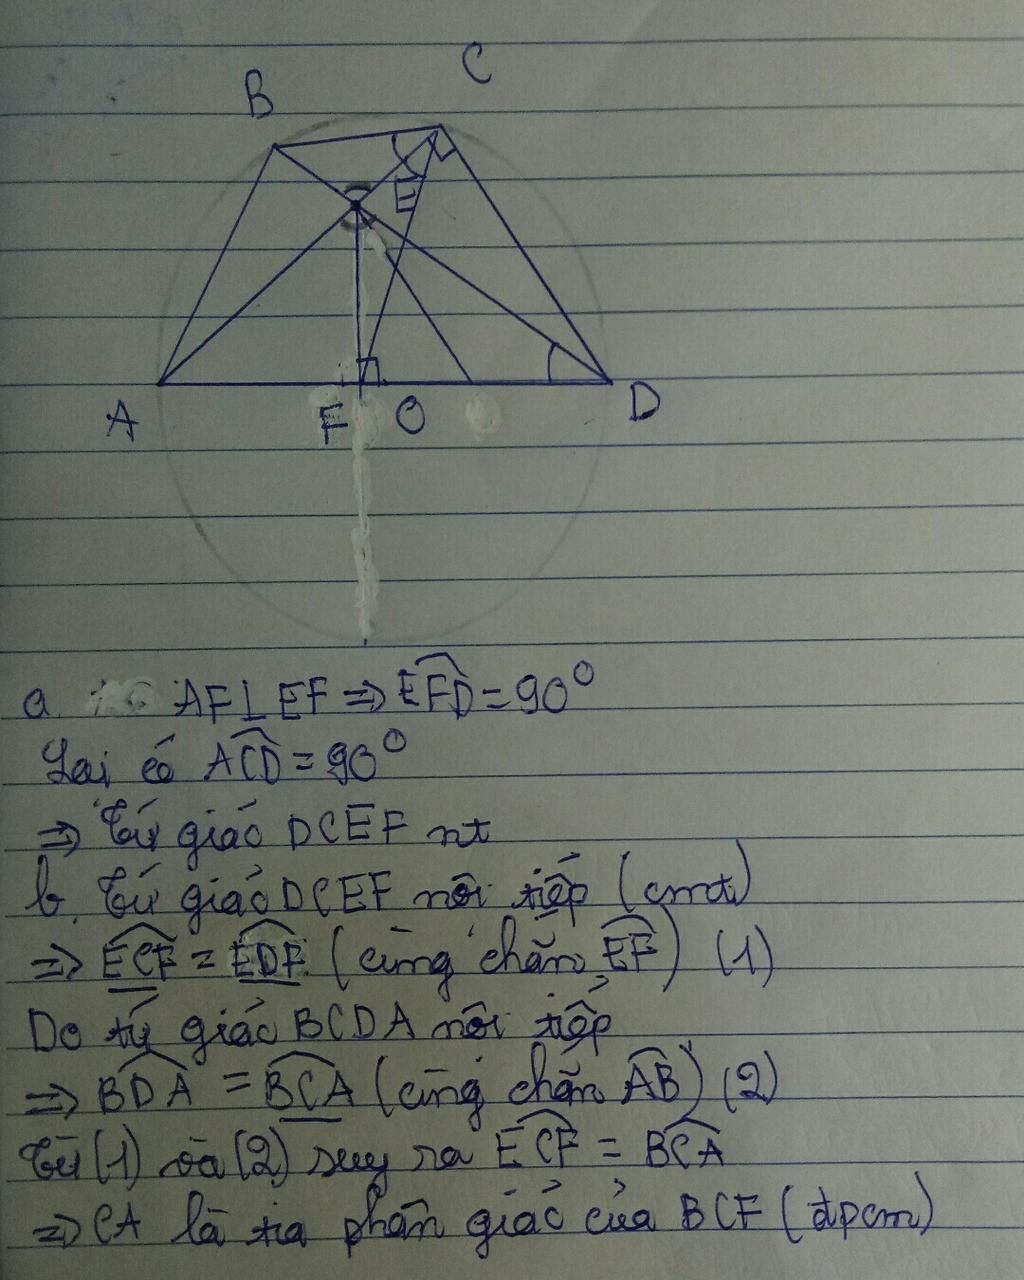 B
C
E
A
F
O
D
a. AF⊥EF ⇒ EFD = 90°
Lại có ACD = 90°
⇒ Tứ giác DCEF nt
b. Tứ giác DCEF nội tiếp (cmt)
⇒ ECF = EDF (cùng chắn EF) (1)
Do tứ giác BCDA nội tiếp
⇒ BDA = BCA (cùng chắn AB) (2)
Từ (1) và (2) suy ra ECF = BCA
⇒ CA là tia phân giác của BCF (đpcm)